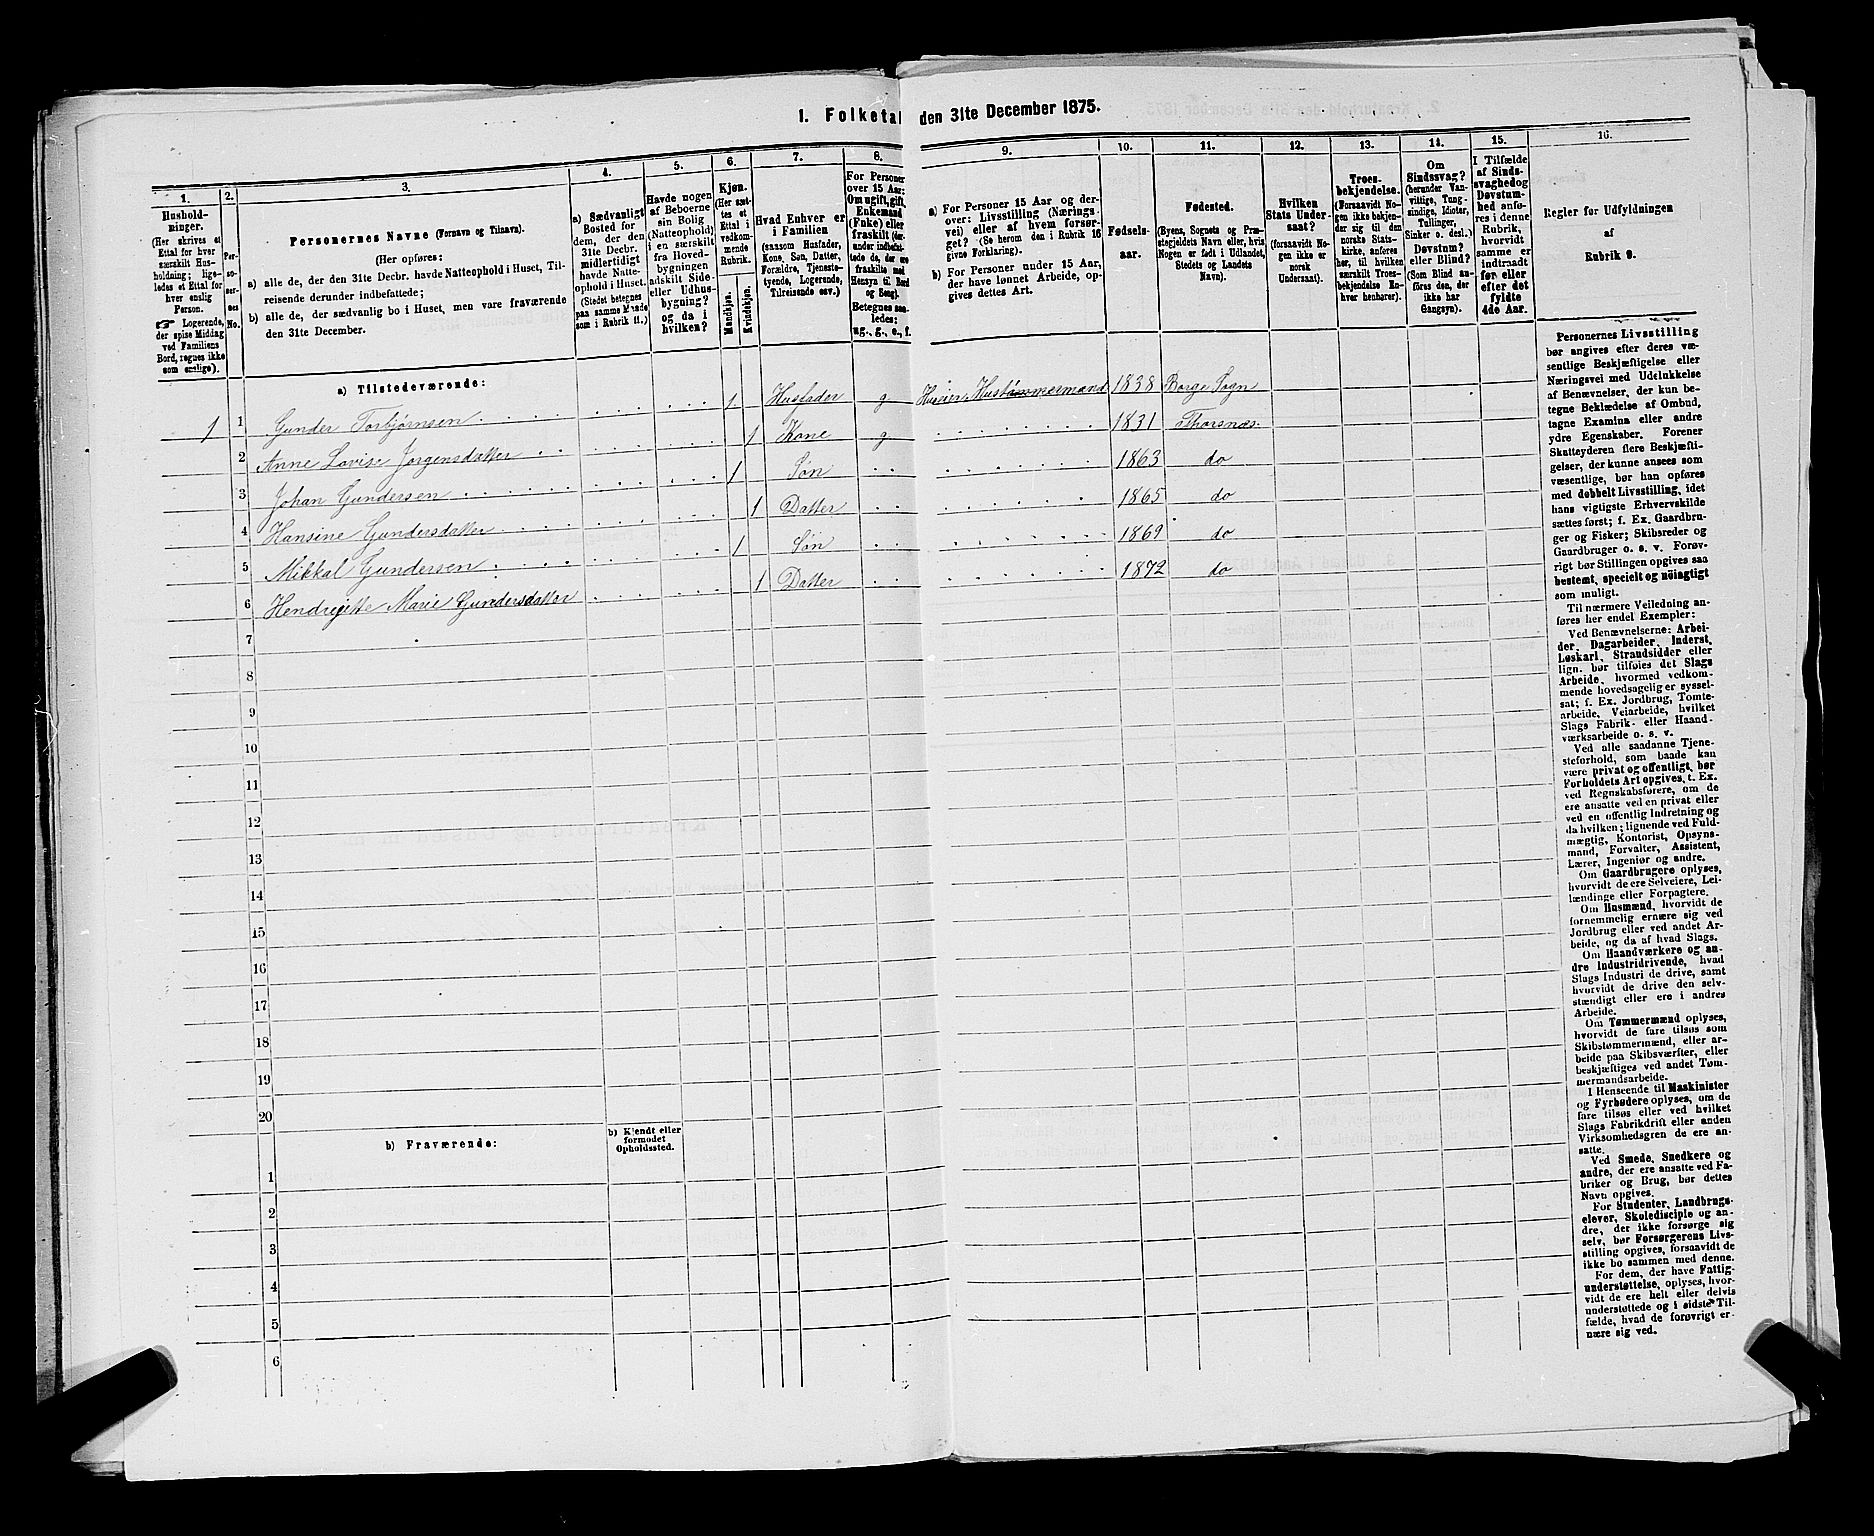 1. Folketal den 31te December 1875.
1.
Hushold-
ninger.
(Her skrives et
Ettal for hver
særskilt Hus-
holdning; lige-
ledes et Ettal for
hver enslig
Person.
☞ Logerende,
der spise Middag
ved Familiens
Bord, regnes ikke
som enslige).
2.
Per-
so-
ner-
nes
No.
3.
Personernes Navne (Fornavn og Tilnavn).
(Her opføres:
a) alle de, der den 31te Decbr. havde Natteophold i Huset, Til-
reisende derunder indbefattede;
b) alle de, der sædvanlig bo i Huset, men vare fraværende
den 31te December.
4.
a) Sædvanligt
Bosted for
dem, der den
31te Decbr.
midlertidigt
havde Natte-
ophold i Huset.
(Stedet betegnes
paa samme Maade
som i Rubrik 11.)
5.
Havde nogen
af Beboerne
sin Bolig
(Natteophold)
i en særskilt
fra Hoved-
bygningen
adskilt Side-
eller Udhus-
bygning?
og da i
hvilken?
6.
Kjøn.
(Her sæt-
tes et
Ettal i
vedkom-
mende
Rubrik.
Mandkjøn.
Kvindekjøn.
7.
Hvad Enhver er
i Familien
(saasom Husfader,
Kone, Søn, Datter,
Forældre, Tjeneste-
tyende, Logerende,
Tilreisende osv.)
8.
For Personer
over 15 Aar:
Om ugift, gift,
Enkemand
(Enke) eller
fraskilt (der-
under indbefat-
tede de, der ere
fraskilte med
Hensyn til Bord
og Seng).
Betegnes saa-
ledes:
ug., g., e., f.
9.
a) For Personer 15 Aar og der-
over: Livsstilling (Nærings-
vei) eller af hvem forsør-
get? (Se herom den i Rubrik 16
givne Forklaring).
b) For Personer under 15 Aar,
der have lønnet Arbeide, op-
gives dettes Art.
10.
Fødsels-
aar.
11.
Fødested.
(Byens, Sognets og Præ-
stegjeldets Navn eller, hvis
Nogen er født i Udlandet,
Stedets og Landets
Navn).
12.
Hvilken
Stats Under-
saat?
(forsaavidt No-
gen ikke er
norsk
Undersaat).
13.
Troes-
bekjendelse.
(Forsaavidt No-
gen ikke bekjen-
der sig til den
norske Stats-
kirke, anføres
her, til hvilken
særskilt Troes-
bekjendelse En-
hver henhører).
14.
Om
Sindssvag?
(herunder Van-
vittige, Tung-
sindige, Idioter,
Tullinger,
Sinker o. desl.)
Døvstum?
eller Blind?
(Som Blind an-
føres den, der
ikke har
Gangsyn).
15.
I Tilfælde
af Sinds-
svaghed og
Døvstum-
hed anfø-
res i denne
Rubrik,
hvorvidt
samme er
indtraadt
før eller
efter det
fyldte
4de Aar.
16.
Regler for Udfyldningen
af
Rubrik 9.
a) Tilstedeværende:
1 1 Gunder Torbjørnsen 1 Husfader g Huseier, Hustømmermand 1838 Borge Sogn
2 Anne Lovise Jorgensdatter 1 Kone g 1831 Thorsnæs
3 Johan Gundersen 1 Søn 1863 do
4 Hansine Gundersdatter 1 Datter 1865 do
5 Mikkal Gundersen 1 Søn 1869 do
6 Hendregitte Marie Gundersdatter 1 Datter 1872 do
7
8
9
10
11
12
13
14
15
16
17
18
19
20
b) Fraværende:
b) Kjendt eller
formodet
Opholdssted.
1
2
3
4
5
6
Personernes Livsstilling
bør angives efter deres væ-
sentlige Beskjæftigelse eller
Næringsvei med Udelukkelse
af Benævnelser, der kun be-
tegne Beklædelse af Ombud,
tagne Examina eller andre
ydre Egenskaber. Forener
Skatteyderen flere Beskjæfti-
gelser, der kunne ansees som
væsentlige, bør han opføres
med dobbelt Livsstilling, idet
hans vigtigste Erhvervskilde
sættes først; f. Ex. Gaardbru-
ger og Fisker; Skibsreder og
Gaardbruger o. s. v. Forøv-
rigt bør Stillingen opgives saa
bestemt, specielt og nöiagtigt
som muligt.
Til nærmere Veiledning an-
føres her endel Exempler:
Ved Benævnelserne: Arbei-
der, Dagarbeider, Inderst,
Løskarl, Strandsidder eller
lign. bør tilføies det Slags
Arbeide, hvormed vedkom-
mende hovedsagelig er syssel-
sat; f. Ex. Jordbrug, Tomte-
arbeide, Veiarbeide, hvilket
Slags Fabrik- eller Haand-
værksarbeide o. s. v.
Ved alle saadanne Tjene-
steforhold, som baade kan
være privat og offentligt, bør
Forholdets Art opgives, t. Ex.
ved Regnskabsførere, om de
ere ansatte ved en privat eller
ved en offentlig Indretning og
da hvilken; lignende ved Fuld-
mægtig, Kontorist, Opsyns-
mand, Forvalter, Assistent,
Lærer, Ingeniør og andre.
Om Gaardbrugere oplyses,
hvorvidt de ere Selveiere, Lei-
lændinge eller Forpagtere.
Om Husmænd, hvorvidt de
fornemmelig ernære sig ved
Jordbrug eller ved andet Ar-
beide, og da af hvad Slags.
Om Haandværkere og an-
dre Industridrivende, hvad
Slags Industri de drive, samt
hvorvidt de drive den selv-
stændigt eller ere i andres
Arbeide.
Om Tømmermænd oplyses,
hvorvidt de fare tilsøs som
Skibstømmermænd, eller ar-
beide paa Skibsværfter, eller
beskjæftiges ved andet Tøm-
mermandsarbeide.
I Henseende til Maskinister
og Fyrbødere oplyses, om de
fare tilsøs eller ved hvilket
Slags Fabrikdrift eller anden
Virksomhedsgren de ere an-
satte.
Ved Smede, Snedkere og
andre, der ere ansatte ved Fa-
briker og Brug, bør dettes
Navn opgives.
For Studenter, Landbrugs-
elever, Skoledisciple og an-
dre, der ikke forsørge sig
selv, bør Forsørgerens Livs-
stilling opgives, forsaavidt de
ikke bo sammen med denne.
For dem, der have Fattig-
understøttelse, oplyses, hvor-
vidt de ere helt eller delvis
understøttede og i sidste Til-
fælde, hvad de forøvrigt er-
nære sig ved.